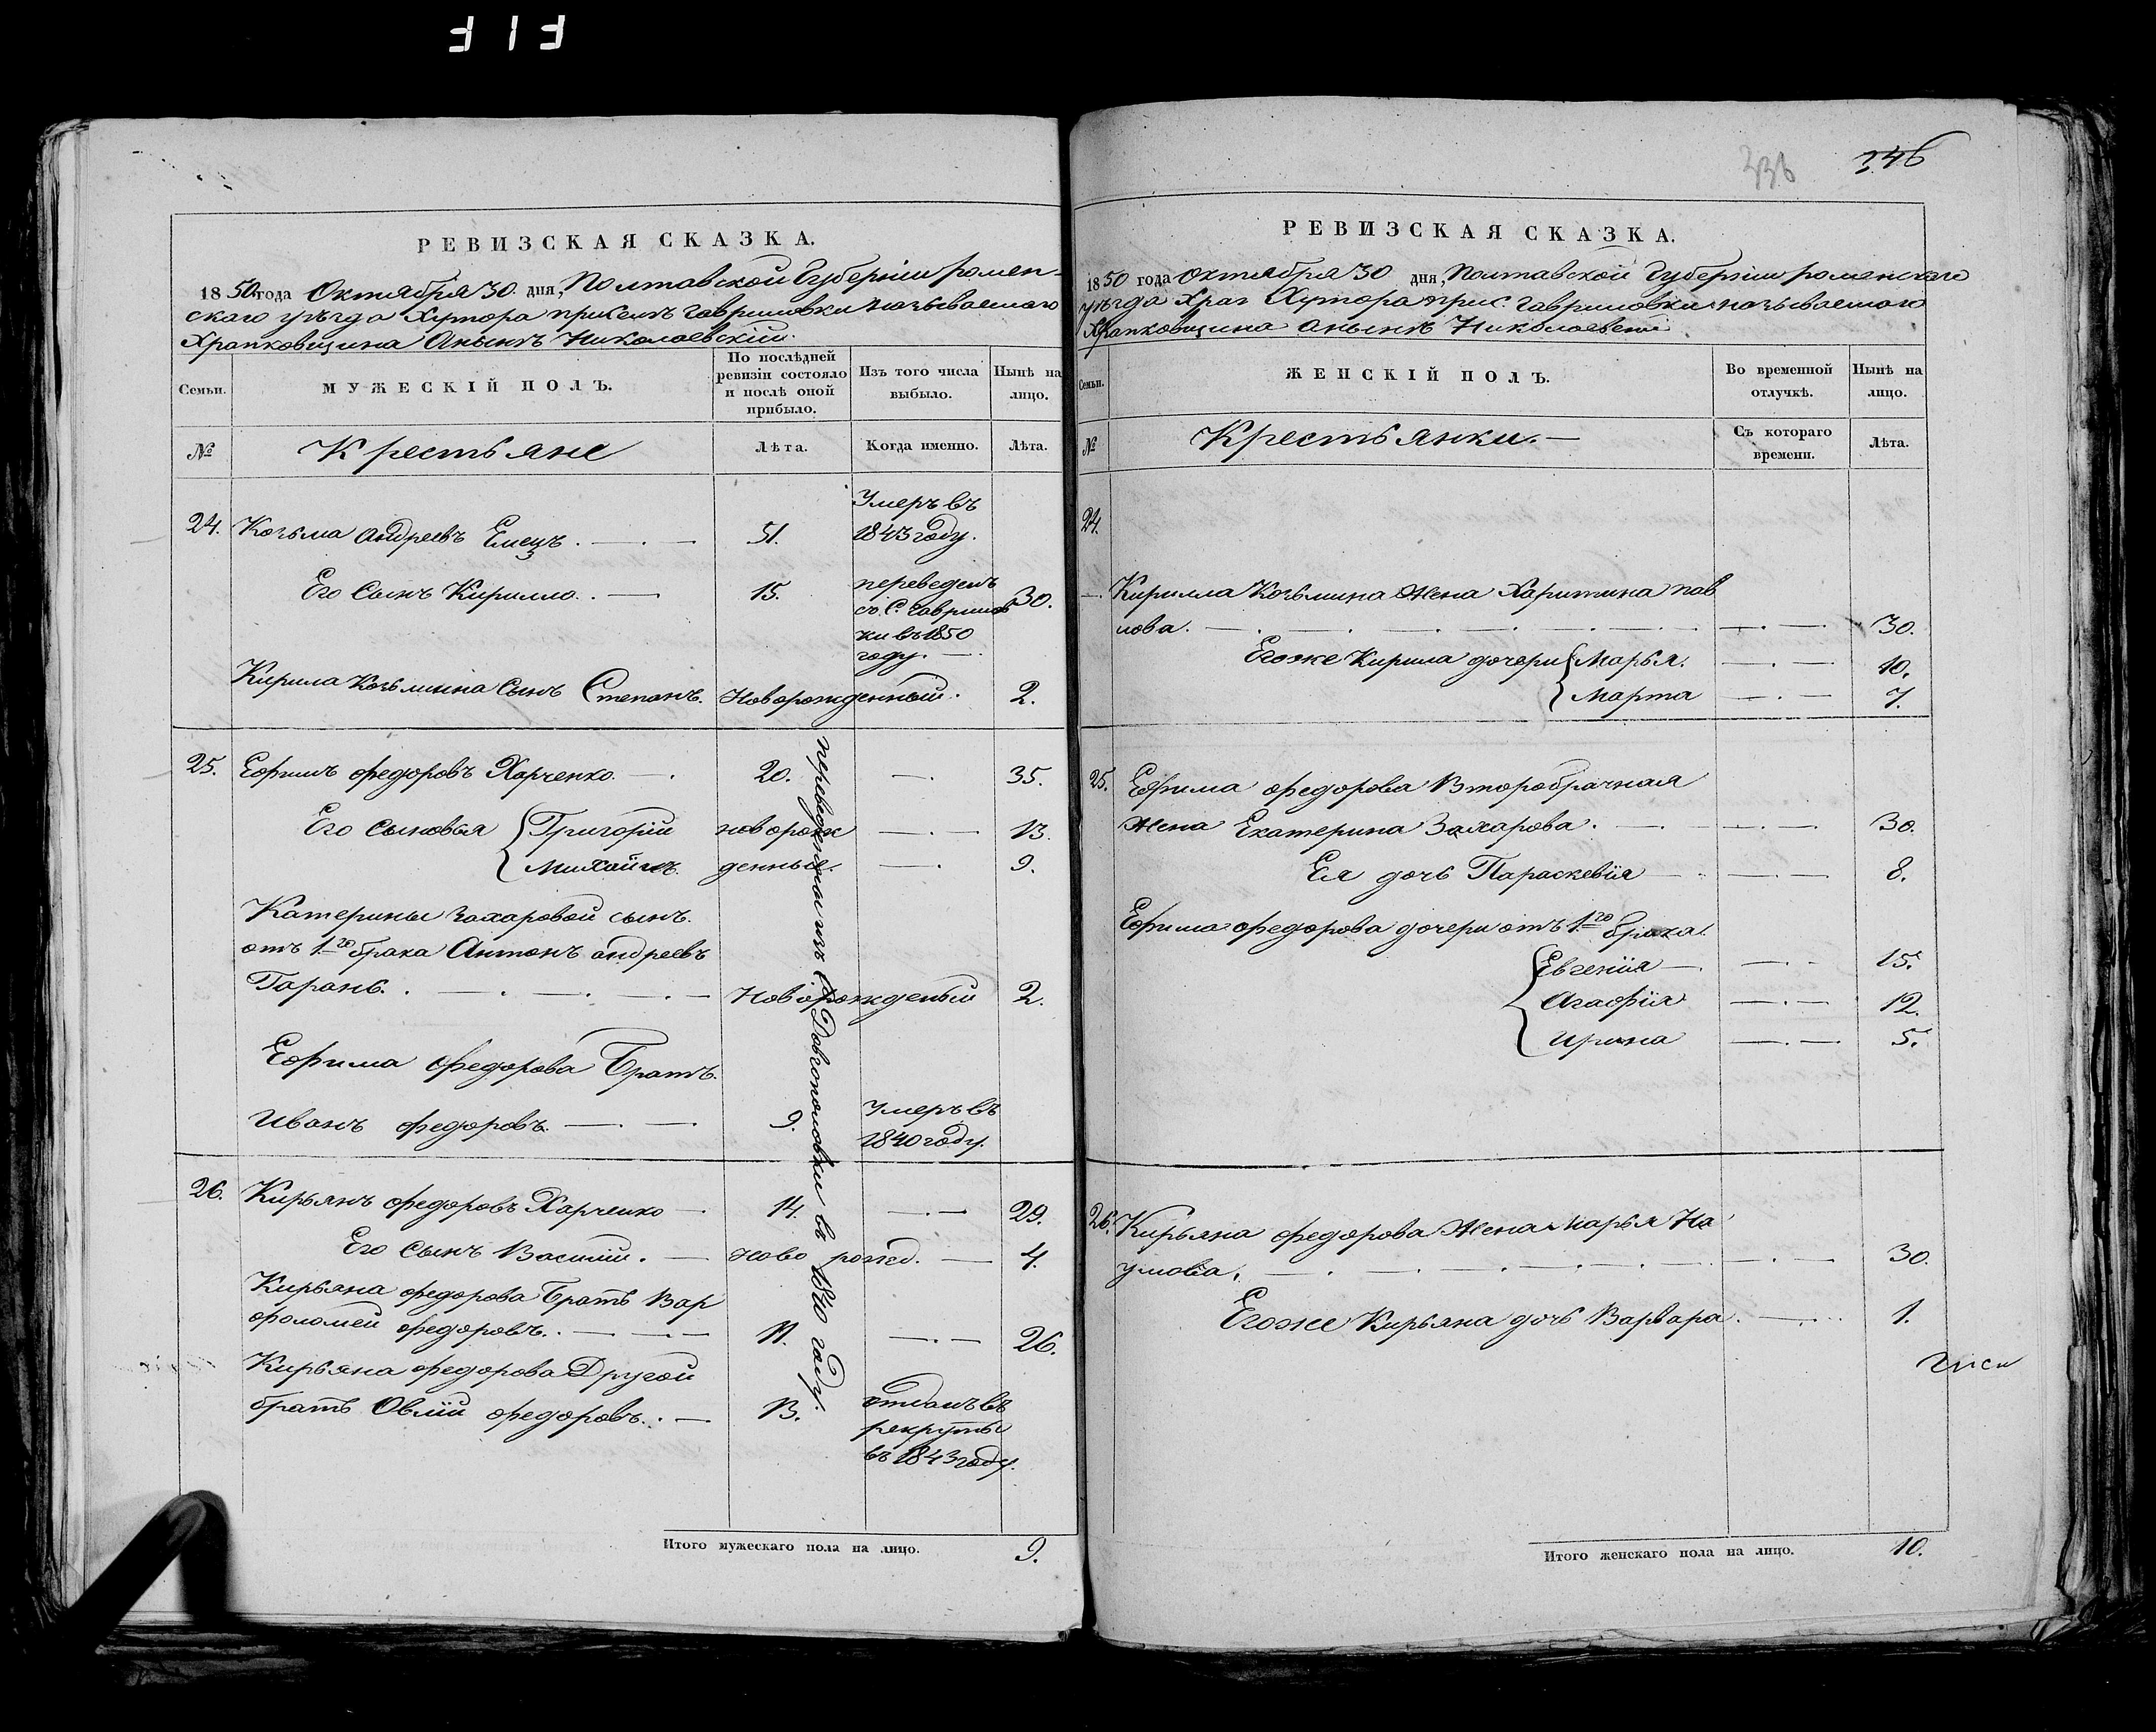 313
336
346
РЕВИЗСКАЯ СКАЗКА.
1850 года Октября 30 дня, Полтавской Губерніи ромен-
скаго уѣзда Хутора присемъ Гавриловки называемаго
Храпковщина Анынъ Николаевскій.
Семьи.
МУЖЕСКІЙ ПОЛЪ.
По послѣдней ревизіи состояло и послѣ оной прибыло.
Изъ того числа выбыло.
Нынѣ на лицо.
№
Крестьяне
Лѣта.
Когда именно.
Лѣта.
24. Козьма Андреевъ Емецъ. 51. Умеръ въ 1843 году.
Его Сынъ Кирилло. 15. переведенъ въ С. Гаврилов ки въ 1850 году. 30.
Кирила Козьмина Сынъ Степанъ. Новорожденный. 2.
25. Ефимъ федоровъ Харченко. 20. 35.
Его Сыновья Григорій новорож 13.
Михайлъ. денные. 9.
Катерины Захаровой сынъ.
отъ 1го брака Антонъ андреевъ
Гарань. Новорожденый 2.
Ефима федорова Братъ.
Иванъ федоровъ. 9. Умеръ въ 1840 году.
26. Кирьянъ федоровъ Харченко 14. 29.
Его Сынъ Василій. Ново рожд. 4.
Кирьяна федорова Братъ Вар
фоломей федоровъ. 11. 26.
Кирьяна федорова Другой
братъ Овлій федоровъ. 13. отданъ въ рекруты въ 1843 году.
переведенны изъ С. Довгополовки въ 1840 году.
Итого мужескаго пола на лицо. 9.
РЕВИЗСКАЯ СКАЗКА.
1850 года Октября 30 дня, Полтавской Губерніи роменскаго
уѣзда Хутора прис. Гавриловки называемаго
Храпковщина анынѣ Николаевskій
Семьи.
ЖЕНСКІЙ ПОЛЪ.
Во временной отлучкѣ.
Нынѣ на лицо.
№
Крестьянки.
Съ котораго времени.
Лѣта.
24.
Кирилла Козьмина Жена Харитина пав
лова. 30.
Егоже Кирила дочери Марья. 10.
Марта 7.
25. Ефима федорова Второбрачная
Жена Екатерина Захарова. 30.
Ея дочь Параскевія 8.
Ефима федорова дочери отъ 1го брака.
Евгенія 15.
Агафія 12.
Ирина 5.
26. Кирьяна федорова Жена марья На
умова. 30.
Егоже Кирьяна дочь Варвара. 1.
Итого женскаго пола на лицо. 10.